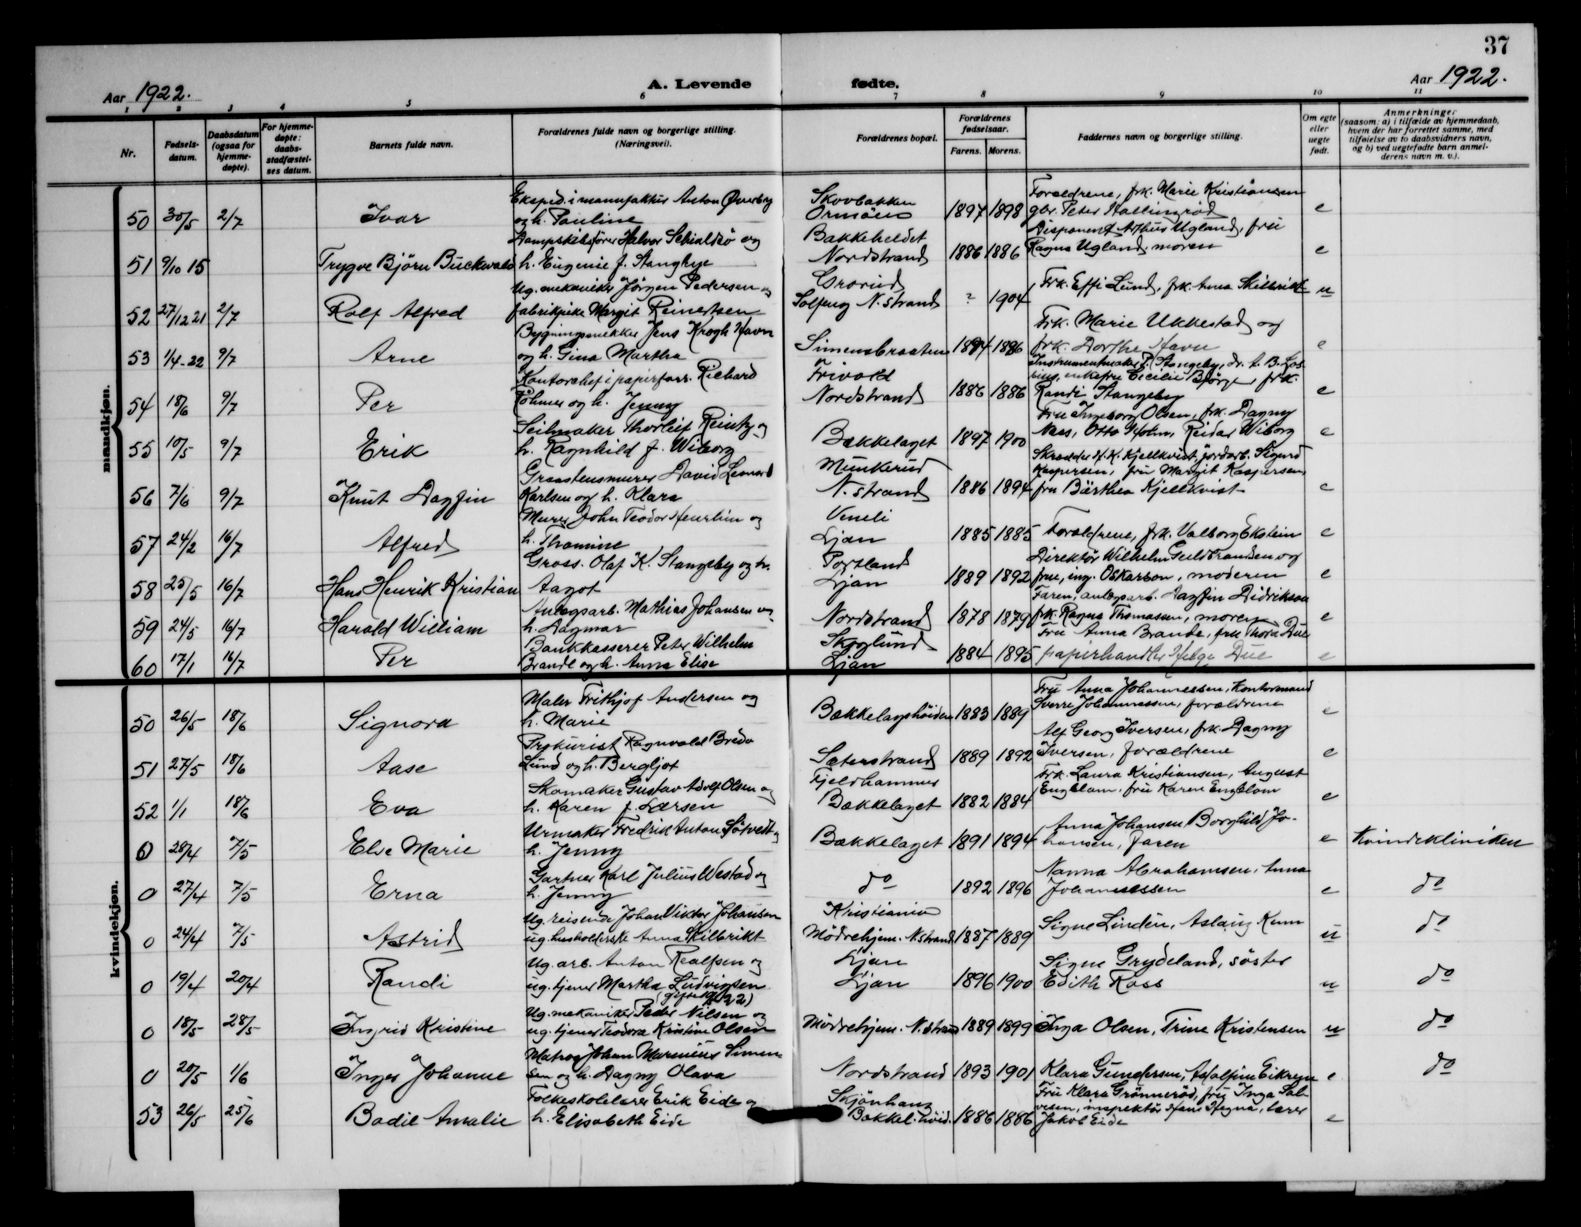 37
Aar 1922.
A. Levende fødte.
Aar 1922.
1 2 3 4 5 6 7 8 9 10 11
Nr.
Fødsels-
datum.
Daabsdatum
(ogsaa for
hjemme-
døpte).
For hjemme-
døpte:
daabs-
stadfæstel-
ses datum.
Barnets fulde navn.
Forældrenes fulde navn og borgerlige stilling.
(Næringsvei).
Forældrenes bopæl.
Forældrenes
fødselsaar.
Farens. Morens.
Faddernes navn og borgerlige stilling.
Om egte
eller
uegte
født.
Anmerkninger
(saasom: a) i tilfælde av hjemmedaab,
hvem der har forrettet samme, med
tilføielse av to daabsvidners navn,
og b) ved uegtefødte barn anmel-
derens navn m. v.).
mandkjøn.
50 30/5 2/7 Ivar
Eksped. i manufaktur Anton Øverby
og h. Pauline
Skovbakken
Ormøen
1897 1898
Forældrene, frk. Marie Kristiansen
gbr. Peter
e
51 9/10 15 Trygve Björn Buckwald
Dampskibsfører Halvor og
h. Eugenie f. Stanghye
Bakkeheldet
Nordstrand
1886 1886
Disponent Arthur Ugland, fru
Ragna Ugland, moren
e
52 27/12 21 2/7 Rolf Alfred
Ug. mekaniker Jörgen Pedersen og
fabrikpike Margit Reinertsen
Grorud
Solfeng N. strand
? 1904
Frk. Effi Lund, frk. Anna Skilbrikt
u
53 1/4-22 9/7 Arne
Bygningssnekker Jens Krogh Havn
og h. Gina Martha
Simensbraaten
1894 1886
Frk. Marie Ukkestad og
frk. Dorthe Havn
e
54 18/6 9/7 Per
Kontorchef i papirforr. Richard
og h. Jenny
Frivold
Nordstrand
1886 1886
Instrumentmaker Stangeby,
enkefru Cecilie frk.
Randi Stangeby
e
55 10/5 9/7 Erik
Seilmaker Thorleif Reintz og
h. Ragnhild f. Wiborg
Bækkelaget
1897 1900
Fru Ingeborg Olsen, frk. Dagny
Næss, Otto Holm, Reidar Wiborg
e
56 7/6 9/7 Knut Dagfin
Graastensmurer David Leonard
Karlsen og h. Klara
Munkerud
N. strand
1886 1894
Skrædder H. K. Kjellkvist, jordarb. Sigurd
Kaspersen, fru Margit Kaspersen,
fru Bärthea Kjellkvist
e
57 24/2 16/7 Alfred
Murer John Teodor Heurlin og
h. Thomine
Veneli
Ljan
1885 1885
Forældrene, frk. Valborg Ekstein
e
58 25/5 16/7 Hans Henrik Kristian
Gross. Olaf K. Stangeby og h.
Aagot
Portland
Ljan
1889 1892
Direktör Wilhelm Guldbrandsen og
frue, ing. Oskarson, moderen
e
59 24/5 16/7 Harald William
Anlegsarb. Mathias Johansen og
h. Dagmar
Nordstrand
1878 1879
Faren, anlegsarb. Dagfin Didriksen
frk. Ragna Thomassen, moren
e
60 17/1 16/7 Per
Bankkasserer Peter Wilhelm
Brandt og h. Anna Elise
Skoglund
Ljan
1884 1895
Fru Anna Brande, frk. Thora Due
papirhandler Helge Due
e
kvindekjøn.
50 26/5 18/6 Signora
Maler Frithjof Andersen og
h. Marie
Bækkelagshöiden
1883 1889
Fru Anna Johannessen, Kontormand
Sverre Johannessen, forældrene
e
51 27/5 18/6 Aase
Prokurist Ragnvald Bredo
Lund og h. Bergljot
Sæterstrand
1889 1892
Alf Georg Iversen, frk. Dagny
Iversen, forældrene
e
52 1/1 18/6 Eva
Skomaker Gustav Adolf Olsen og
h. Karen f. Larsen
Fjeldhammer
Bækkelaget
1882 1884
Frk. Laura Kristiansen, August
Engblom, fru Karen Engblom
e
0 28/4 7/5 Else Marie
Urmaker Fredrik Anton Sötvedt og
h. Jenny
Bækkelaget
1891 1894
Anna Johansen Borghild Jo-
hansen, faren
e
Kvindeklinikken
0 27/4 7/5 Erna
Gartner Karl Julius Westad og
h. Jenny
do
1892 1896
Nanna Abrahamsen, Anna
Johannessen
e
do
0 24/4 7/5 Astrid
Ug. reisende Johan Viktor Johansen
ug. husholderske Anna Skilbrikt
Kristiania
Mödrehjem. N. strand
1887 1889
Signe Linden, Aslaug Kum
u
do
0 19/4 20/4 Randi
Ug. arb. Anton Realfsen og
ug. tjener Martha Ludvigsen
Ljan
Ljan
1896 1900
Signe Grydeland, söster
Edith Ross
u
do
0 18/5 28/5 Ingrid Kristine
Ug. mekaniker Peder Nilsen og
ug. tjener Teodora Kristine Olsen
Mödrehjem. N. strand
1889 1899
Inga Olsen, Trine Kristensen
u
do
0 20/5 1/6 Inger Johanne
Matros Johan Marenius Simen-
sen og h. Dagny Olava
Nordstrand
1893 1901
Klara Gundersen, Adolfine Eikrem
e
do
53 26/5 25/6 Bodil Amalie
Folkeskolelærer Erik Eide og
h. Elisabeth Eide
Skjönhaug
Bækkel. höid.
1886 1886
Fru Klara Grönneröd, fru Inga Sal-
vesen, inspektör Hans Hegna, lærer
Jakob Eide
e